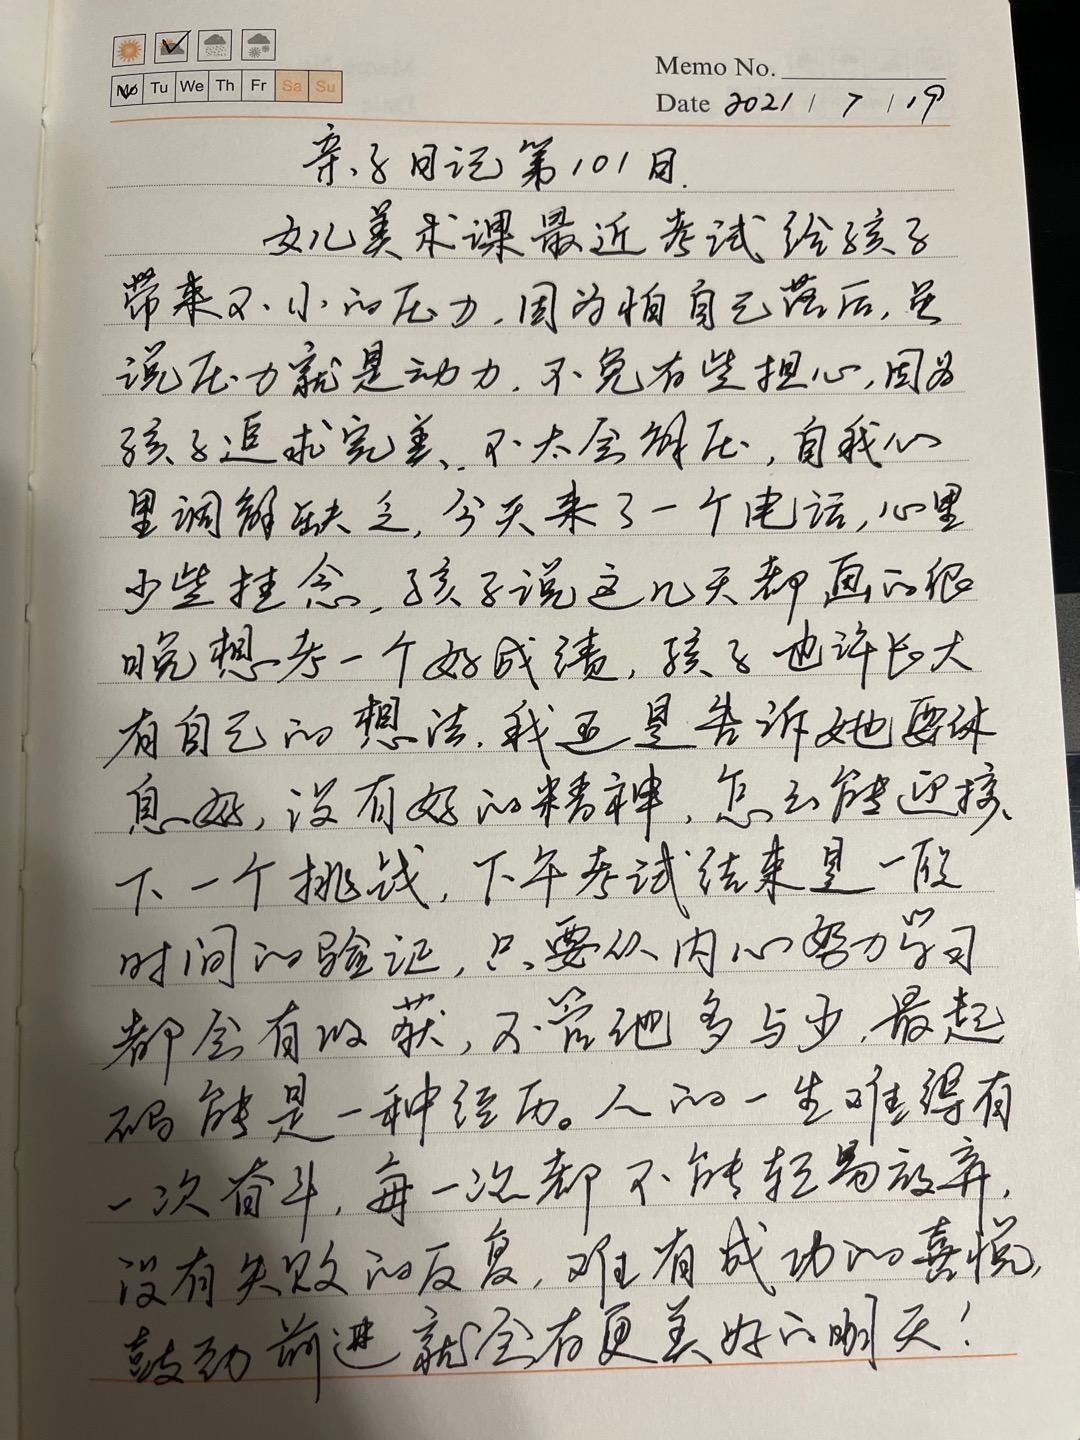 Mo Tu We Th Fr Sa Su
Memo No.
Date 2021 / 7 / 19
亲子日记第101日.
女儿美术课最近考试给孩子
带来不小的压力,因为怕自己落后,虽
说压力就是动力,不免有些担心,因为
孩子追求完美,不太会解压,自我心
里调解缺乏,今天来了一个电话,心里
少些挂念,孩子说这几天都画的很
晚想考一个好成绩,孩子也许长大
有自己的想法.我还是告诉她要休
息好,没有好的精神,怎么能迎接
下一个挑战,下午考试结束是一段
时间的验证,只要从内心努力学习
都会有收获,不管他多与少,最起
码能是一种经历。人的一生难得有
一次奋斗,每一次都不能轻易放弃,
没有失败的反复,难有成功的喜悦,
鼓劲前进就会有更美好的明天!